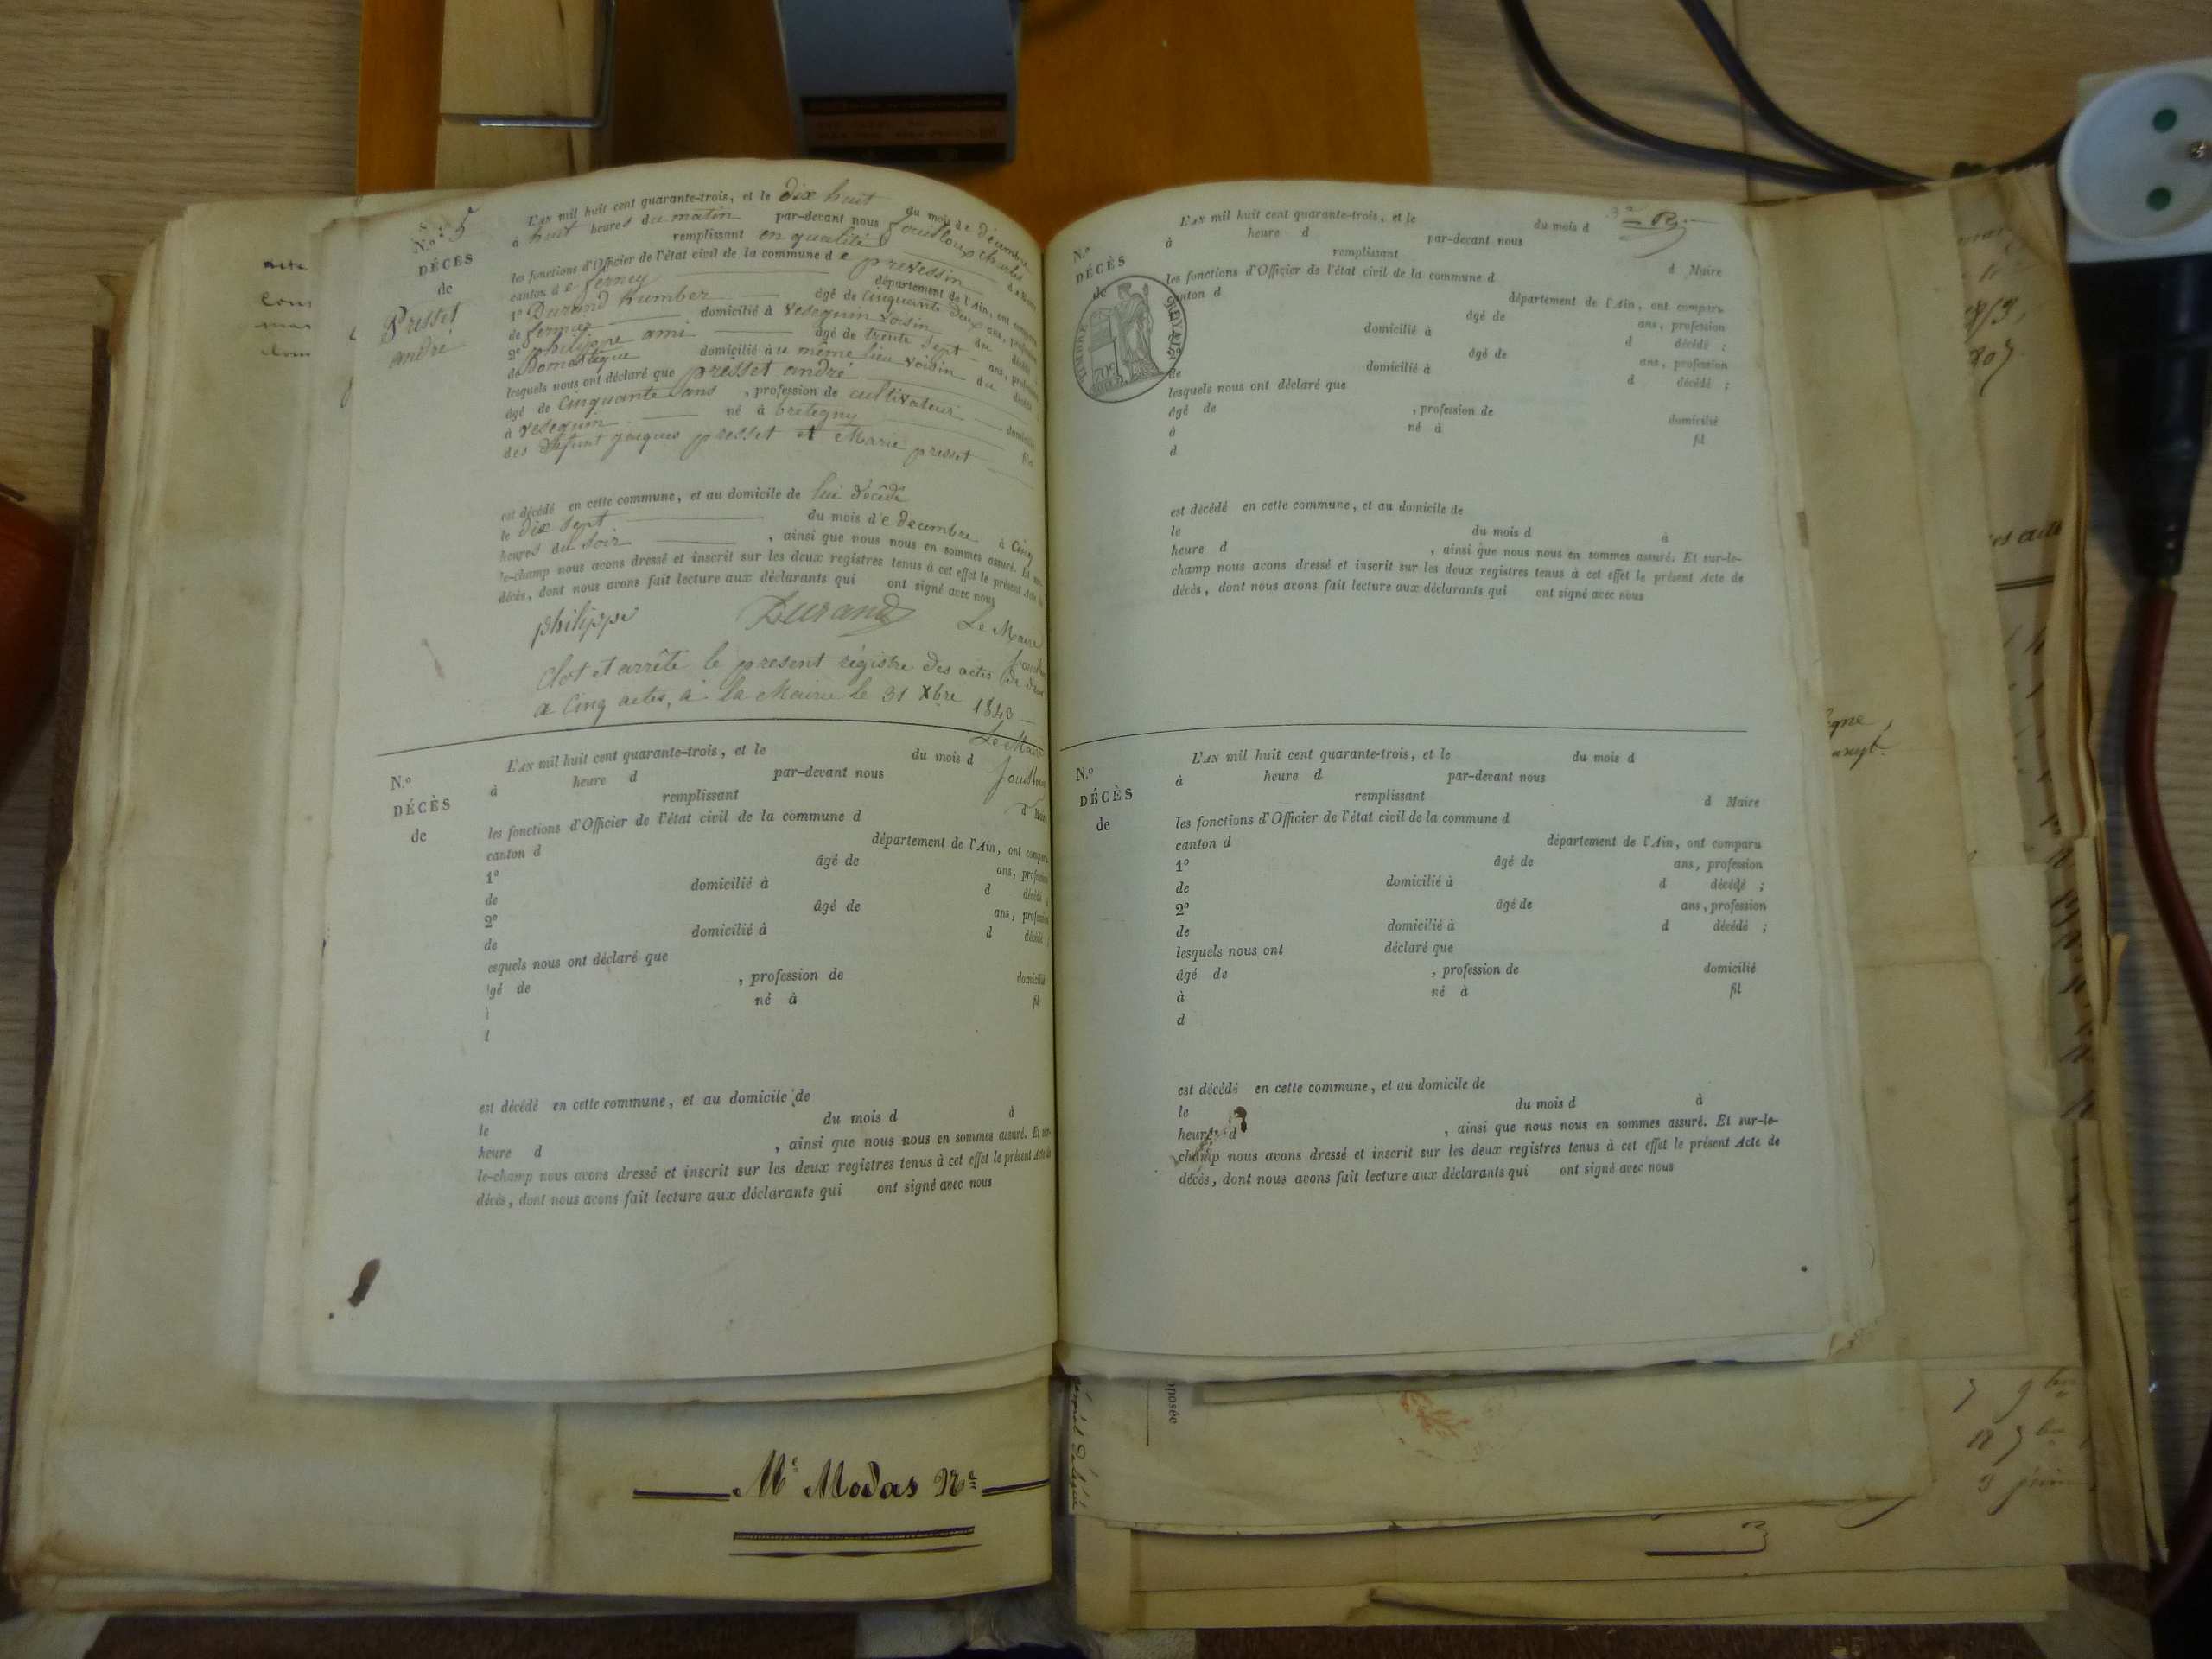 N.º 5
DÉCÈS
de
Presset
andré
L'AN mil huit cent quarante-trois, et le dix huit du mois de décembre
à huit heures du matin par-devant nous fouilloux charles
remplissant en qualité d Maire
les fonctions d'Officier de l'état civil de la commune de prevessin
canton de ferney département de l'Ain, ont comparu
1º Durand humber âgé de cinquante deux ans, profession
de fermier domicilié à vesegnin voisin du décédé
2º philippe ami âgé de trente sept ans, profession
de Domestique domicilié au même lieu voisin du décédé
lesquels nous ont déclaré que presset andré
âgé de Cinquante ans , profession de cultivateur domicilié
à vesegnin né à bretegny fils
des défunt jaques presset et Marie presset
est décédé en cette commune, et au domicile de lui décédé
le dix sept du mois de decembre à Cinq
heures du soir , ainsi que nous nous en sommes assuré. Et sur-
le-champ nous avons dressé et inscrit sur les deux registres tenus à cet effet le présent Acte de
décès, dont nous avons fait lecture aux déclarants qui ont signé avec nous
philippe Durand Le Maire
Clot et arrête le present régistre des actes de
a Cinq actes, à la Mairie le 31 Xbre 1843
Le Maire
N.º
DÉCÈS
de
L'AN mil huit cent quarante-trois, et le du mois d
à heure d par-devant nous
remplissant d Maire
les fonctions d'Officier de l'état civil de la commune d
canton d département de l'Ain, ont comparu
1º âgé de ans, profession
de domicilié à d décédé
2º âgé de ans, profession
de domicilié à d décédé
esquels nous ont déclaré que
gé de , profession de domicilié
né à fil
est décédé en cette commune, et au domicile de
le du mois d à
heure d , ainsi que nous nous en sommes assuré. Et sur-
le-champ nous avons dressé et inscrit sur les deux registres tenus à cet effet le présent Acte de
décès, dont nous avons fait lecture aux déclarants qui ont signé avec nous
Mᵉ Modas Nʳᵉ
N.º
DÉCÈS
de
TIMBRE ROYAL
70c
L'AN mil huit cent quarante-trois, et le du mois d
à heure d par-devant nous
remplissant d Maire
les fonctions d'Officier de l'état civil de la commune d
canton d département de l'Ain, ont comparu
âgé de ans, profession
domicilié à d décédé ;
âgé de ans, profession
de domicilié à d décédé ;
lesquels nous ont déclaré que
âgé de , profession de domicilié
à né à fil
d
est décédé en cette commune, et au domicile de
le du mois d à
heure d , ainsi que nous nous en sommes assuré. Et sur-le-
champ nous avons dressé et inscrit sur les deux registres tenus à cet effet le présent Acte de
décès, dont nous avons fait lecture aux déclarants qui ont signé avec nous
N.º
DÉCÈS
de
L'AN mil huit cent quarante-trois, et le du mois d
à heure d par-devant nous
remplissant d Maire
les fonctions d'Officier de l'état civil de la commune d
canton d département de l'Ain, ont comparu
1º âgé de ans, profession
de domicilié à d décédé ;
2º âgé de ans, profession
de domicilié à d décédé ;
lesquels nous ont déclaré que
âgé de , profession de domicilié
à né à fil
d
est décédé en cette commune, et au domicile de
le du mois d à
heure d , ainsi que nous nous en sommes assuré. Et sur-le-
champ nous avons dressé et inscrit sur les deux registres tenus à cet effet le présent Acte de
décès, dont nous avons fait lecture aux déclarants qui ont signé avec nous
posée